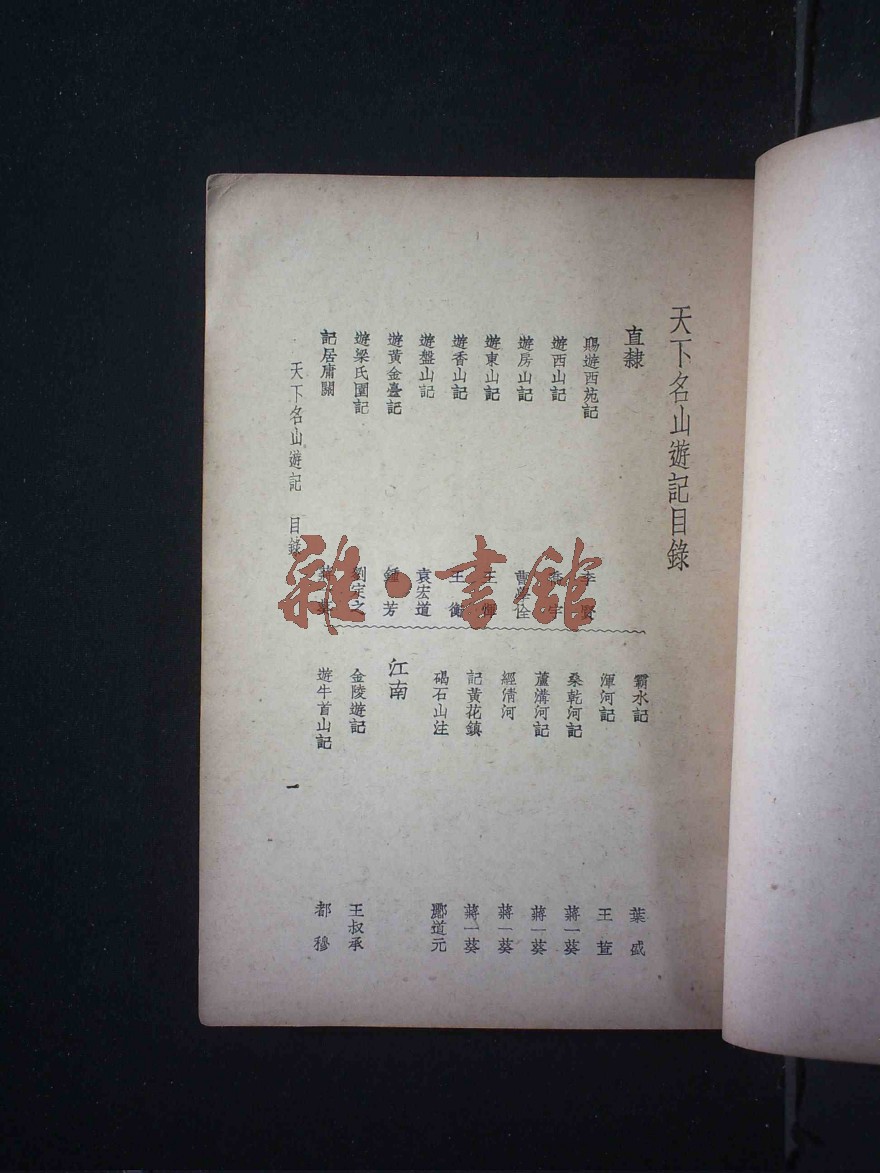 天下名山遊記目錄
直隸
賜遊西苑記 李賢
遊西山記 喬宇
遊房山記 曹學佺
遊東山記 王
遊香山記 王衡
遊盤山記 袁宏道
遊黃金臺記 鍾芳
遊梁氏園記 劉定之
記居庸關
霸水記 葉盛
渾河記 王
桑乾河記 蔣一葵
蘆溝河記 蔣一葵
經淸河 蔣一葵
記黃花鎮 蔣一葵
碣石山注 酈道元
江南
金陵遊記 王叔承
遊牛首山記 都穆
天下名山遊記 目錄
一
雜·書館